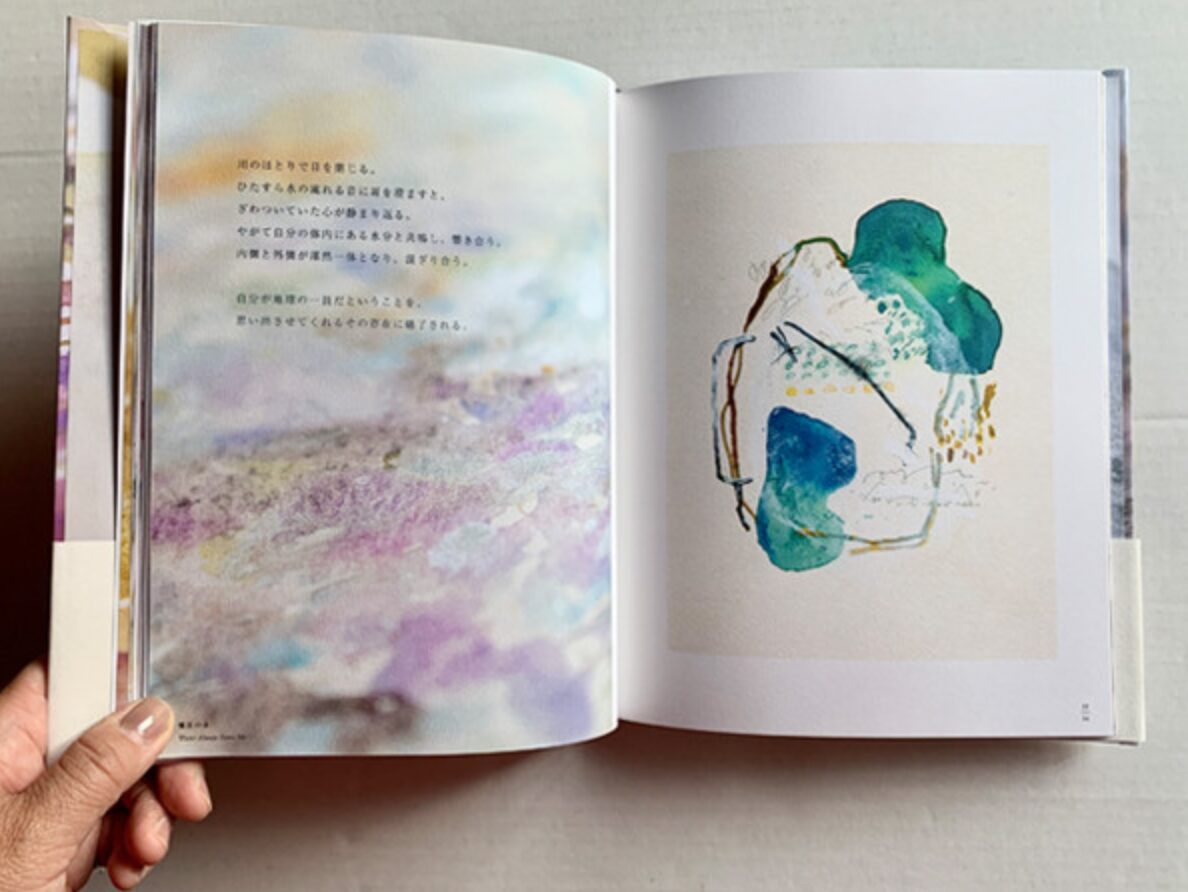 川のほとりで目を閉じる。
ひたすら水の流れる音に耳を澄ますと、
ざわついていた心が静まり返る。
やがて自分の体内にある水分と共鳴し、響き合う。
内側と外側が渾然一体となり、混ざり合う。
自分が地球の一員だということを、
思い出させてくれるその存在に魅了される。